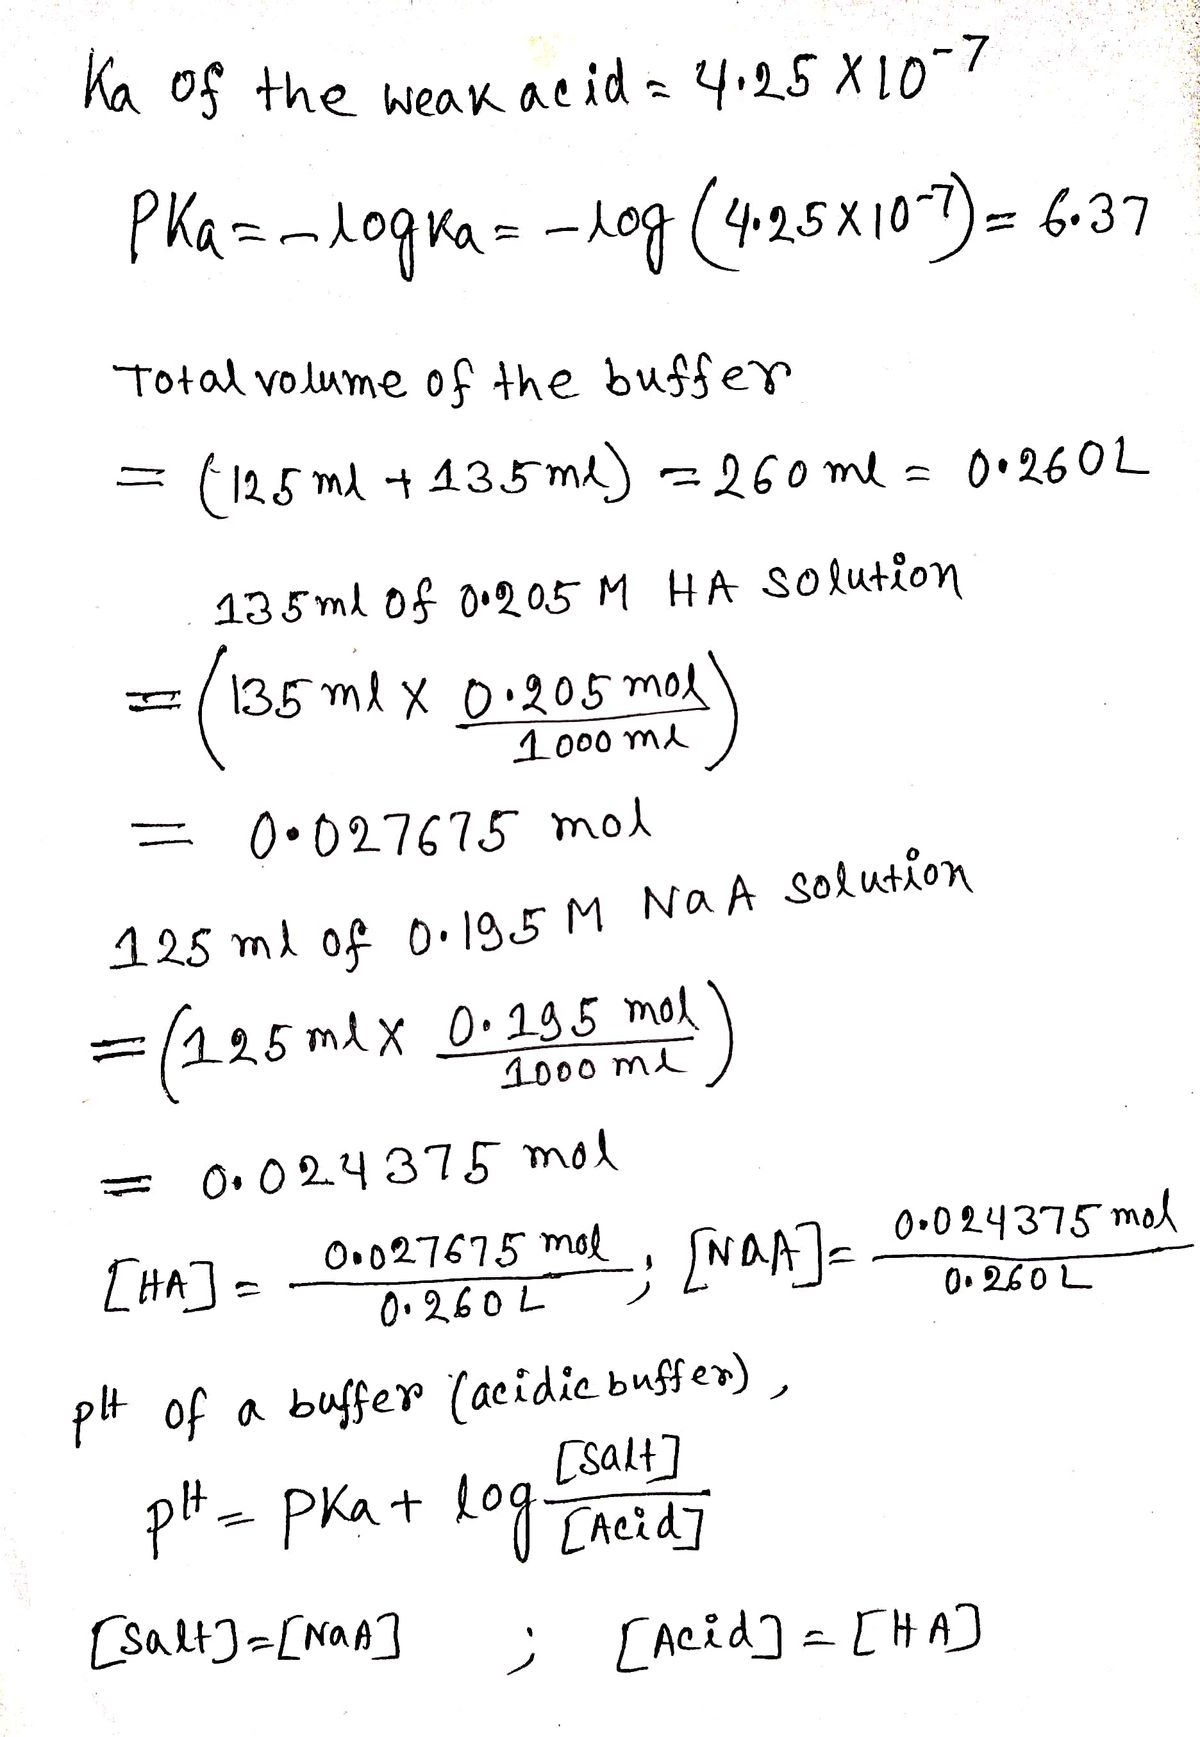 Ka of the weak acid = 4.25 X 10^-7
PKa = -log Ka = -log (4.25 X 10^-7) = 6.37
Total volume of the buffer
= (125 ml + 135 ml) = 260 ml = 0.260 L
135 ml of 0.205 M HA solution
= (135 ml X 0.205 mol / 1000 ml)
= 0.027675 mol
125 ml of 0.195 M NaA solution
= (125 ml X 0.195 mol / 1000 ml)
= 0.024375 mol
[HA] = 0.027675 mol / 0.260 L ; [NaA] = 0.024375 mol / 0.260 L
pH of a buffer (acidic buffer),
pH = PKa + log [Salt] / [Acid]
[Salt] = [NaA] ; [Acid] = [HA]